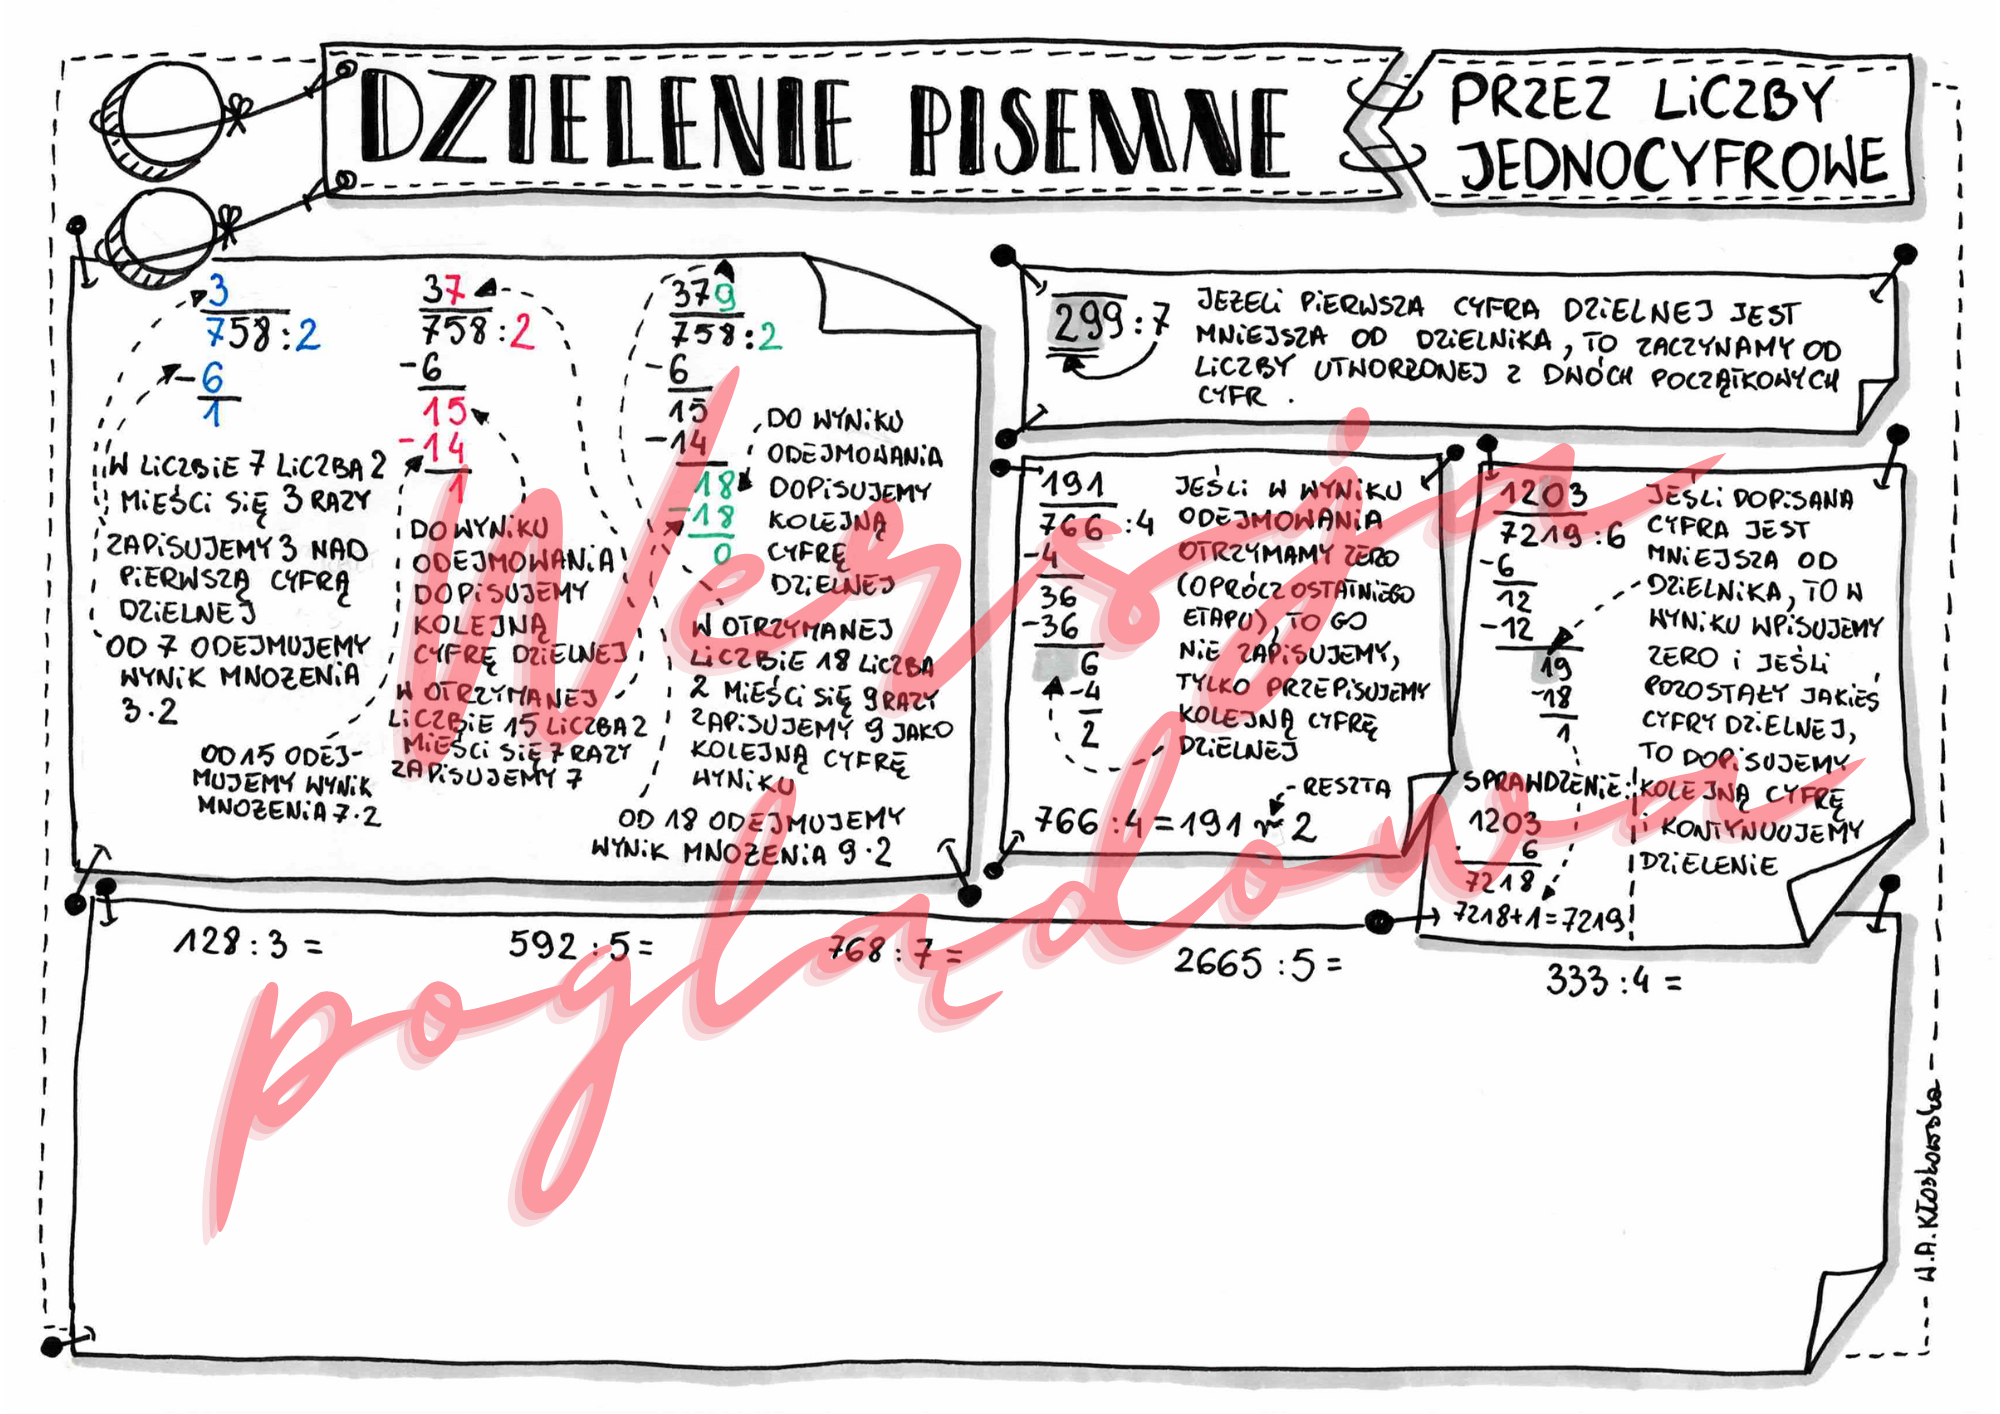 DZIELENIE PISEMNE
PRZEZ LICZBY
JEDNOCYFROWE
3
758:2
-6
1
W LICZBIE 7 LICZBA 2
MIEŚCI SIĘ 3 RAZY
ZAPISUJEMY 3 NAD
PIERWSZĄ CYFRĄ
DZIELNEJ
OD 7 ODEJMUJEMY
WYNIK MNOŻENIA
3·2
37
758:2
-6
15
-14
1
DO WYNIKU
ODEJMOWANIA
DOPISUJEMY
KOLEJNĄ
CYFRĘ DZIELNEJ
W OTRZYMANEJ
LICZBIE 15 LICZBA 2
MIEŚCI SIĘ 7 RAZY
ZAPISUJEMY 7
OD 15 ODEJ-
MUJEMY WYNIK
MNOŻENIA 7·2
379
758:2
-6
15
-14
18
-18
0
DO WYNIKU
ODEJMOWANIA
DOPISUJEMY
KOLEJNĄ
CYFRĘ
DZIELNEJ
W OTRZYMANEJ
LICZBIE 18 LICZBA
2 MIEŚCI SIĘ 9 RAZY
ZAPISUJEMY 9 JAKO
KOLEJNĄ CYFRĘ
WYNIKU
OD 18 ODEJMUJEMY
WYNIK MNOŻENIA 9·2
299:7
JEŻELI PIERWSZA CYFRA DZIELNEJ JEST
MNIEJSZA OD DZIELNIKA, TO ZACZYNAMY OD
LICZBY UTWORZONEJ Z DWÓCH POCZĄTKOWYCH
CYFR.
191
766:4
-4
36
-36
6
-4
2
JEŚLI W WYNIKU
ODEJMOWANIA
OTRZYMAMY ZERO
(OPRÓCZ OSTATNIEGO
ETAPU), TO GO
NIE ZAPISUJEMY,
TYLKO PRZEPISUJEMY
KOLEJNĄ CYFRĘ
DZIELNEJ
RESZTA
766:4=191 r 2
1203
7219:6
-6
12
-12
19
-18
1
JEŚLI DOPISANA
CYFRA JEST
MNIEJSZA OD
DZIELNIKA, TO W
WYNIKU WPISUJEMY
ZERO I JEŚLI
POZOSTAŁY JAKIEŚ
CYFRY DZIELNEJ,
TO DOPISUJEMY
KOLEJNĄ CYFRĘ
I KONTYNUUJEMY
DZIELENIE
SPRAWDZENIE:
1203
· 6
7218
7218+1=7219
128:3=
592:5=
768:7=
2665:5=
333:4=
W.A.Kłosowska
Wersja
poglądowa